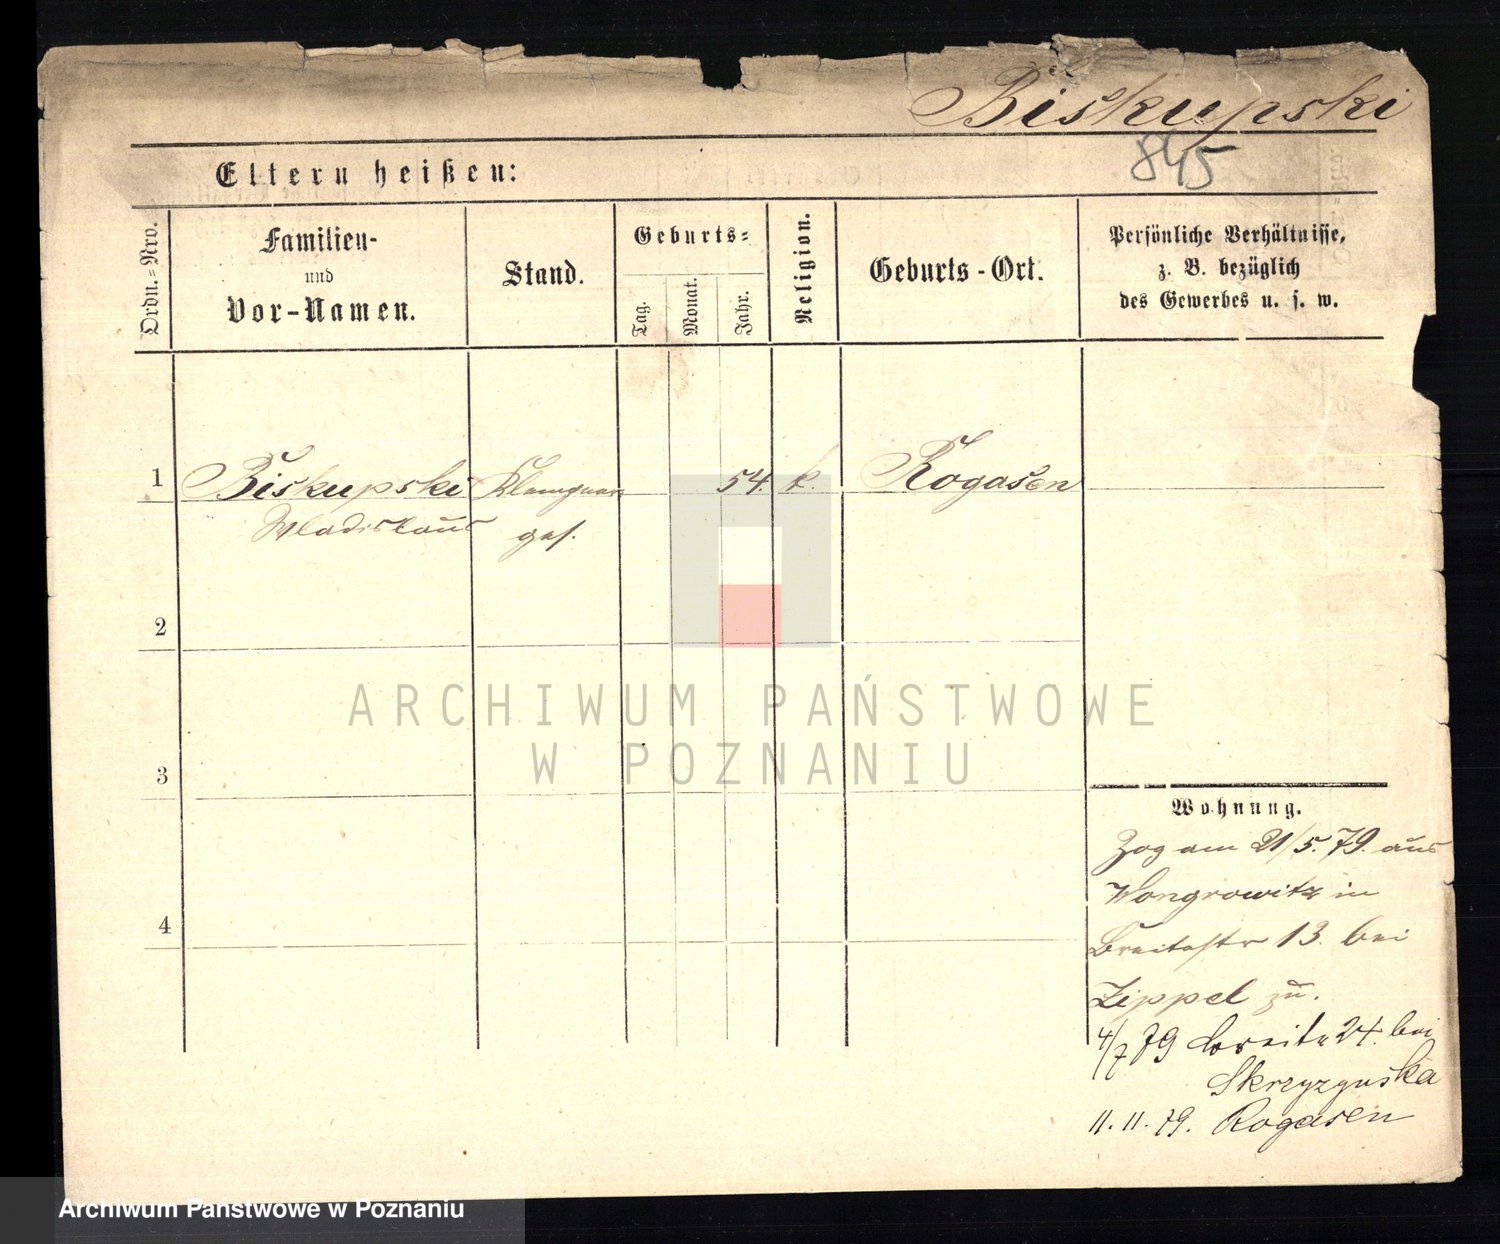 Biskupski
845
Eltern heißen:
Ordn.=Nro.
Familien-
und
Vor-Namen.
Stand.
Geburts=
Tag.
Monat.
Jahr.
Religion.
Geburts-Ort.
Persönliche Verhältnisse,
z. B. bezüglich
des Gewerbes u. s. w.
1
Biskupski
Wladislaus
ges.
54.
k.
Rogasen
2
3
4
ARCHIWUM PAŃSTWOWE
W POZNANIU
Wohnung.
Zog am 21/5.79. aus
Wongrowitz in
Breitestr 13. bei
Zippel zu.
4/7 79 Breite 24. bei
11.11.79. Rogasen
Archiwum Państwowe w Poznaniu